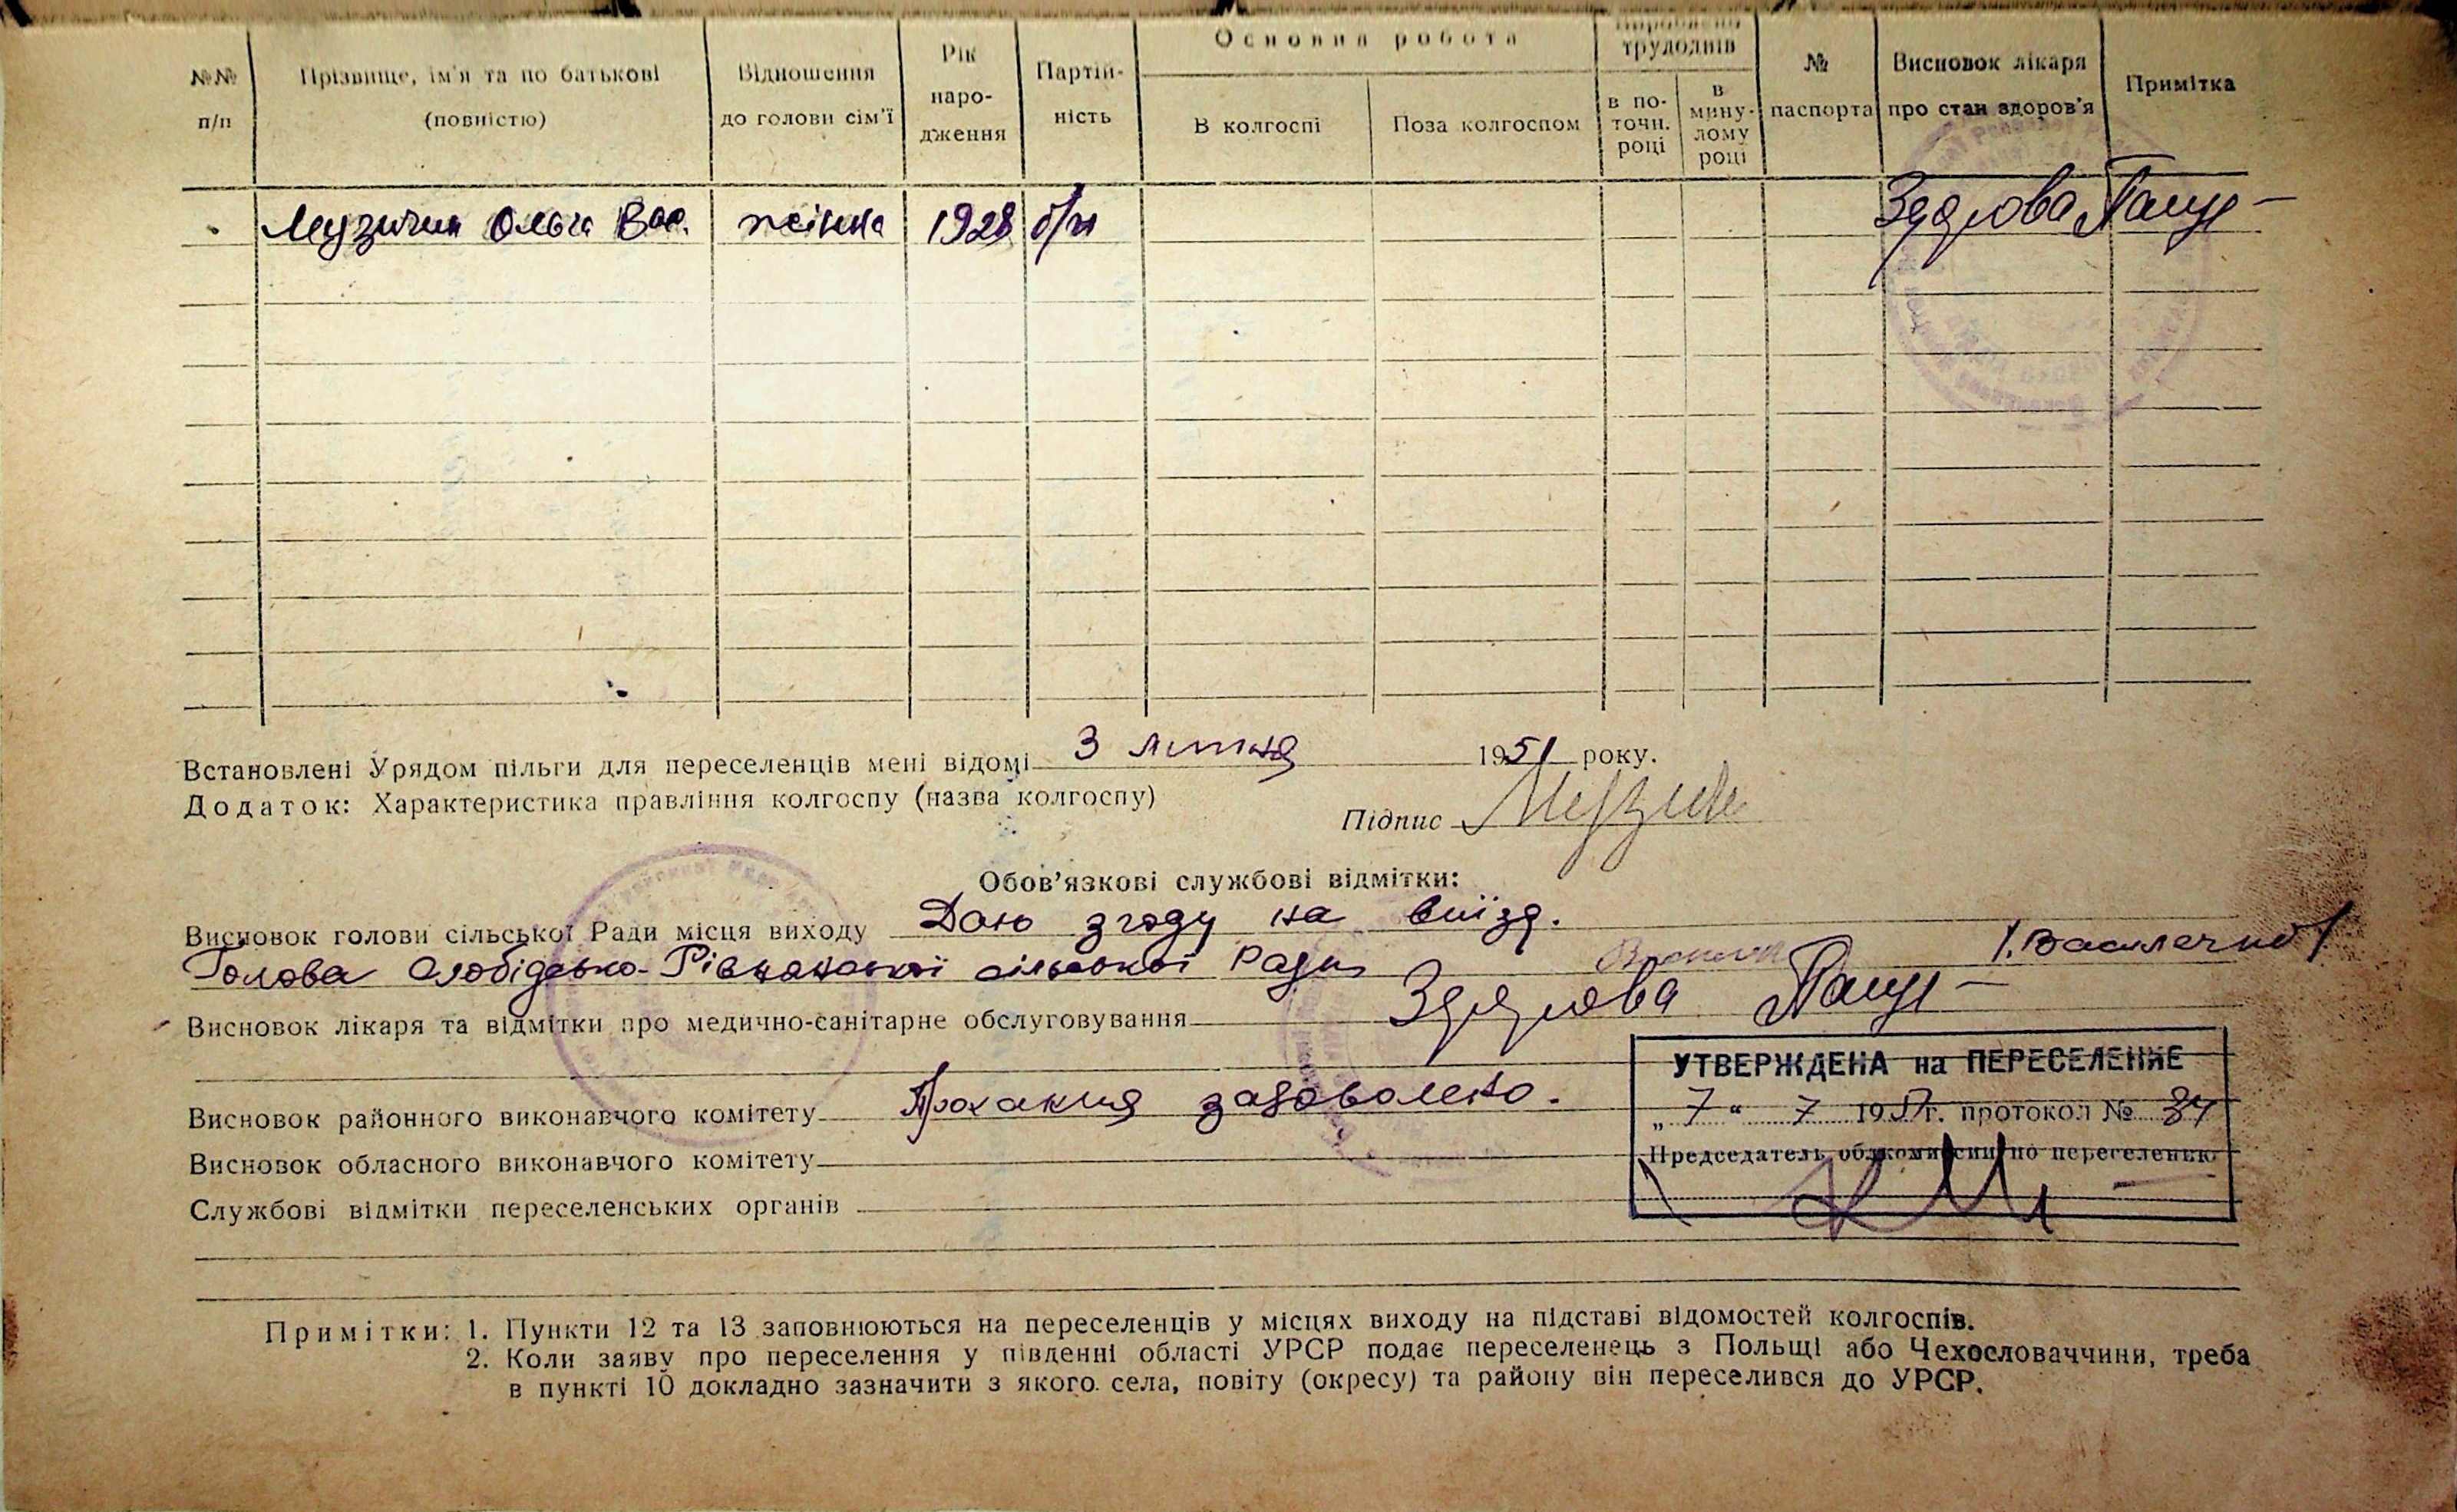 №№ п/п
Прізвище, ім'я та по батькові (повністю)
Відношення до голови сім'ї
Рік народження
Партійність
Основна робота
В колгоспі
Поза колгоспом
трудоднів
в поточн. році
в минулому році
№ паспорта
Висновок лікаря про стан здоров'я
Примітка
Музичин Ольга Вас. жінка 1928 б/п Здорова
Встановлені Урядом пільги для переселенців мені відомі 3 липня 1951 року.
Додаток: Характеристика правління колгоспу (назва колгоспу)
Підпис
Обов'язкові службові відмітки:
Висновок голови сільської Ради місця виходу Даю згоду на виїзд.
Голова Слобідсько-Рівнянської сільської Ради
Висновок лікаря та відмітки про медично-санітарне обслуговування Здорова
УТВЕРЖДЕНА на ПЕРЕСЕЛЕНИЕ
Висновок районного виконавчого комітету Прохання задоволено.
„7“ 7 1951г. протокол № 34
Висновок обласного виконавчого комітету
Председатель облкомиссии по переселению
Службові відмітки переселенських органів
Примітки: 1. Пункти 12 та 13 заповнюються на переселенців у місцях виходу на підставі відомостей колгоспів.
2. Коли заяву про переселення у південні області УРСР подає переселенець з Польщі або Чехословаччини, треба
в пункті 10 докладно зазначити з якого села, повіту (окресу) та району він переселився до УРСР.